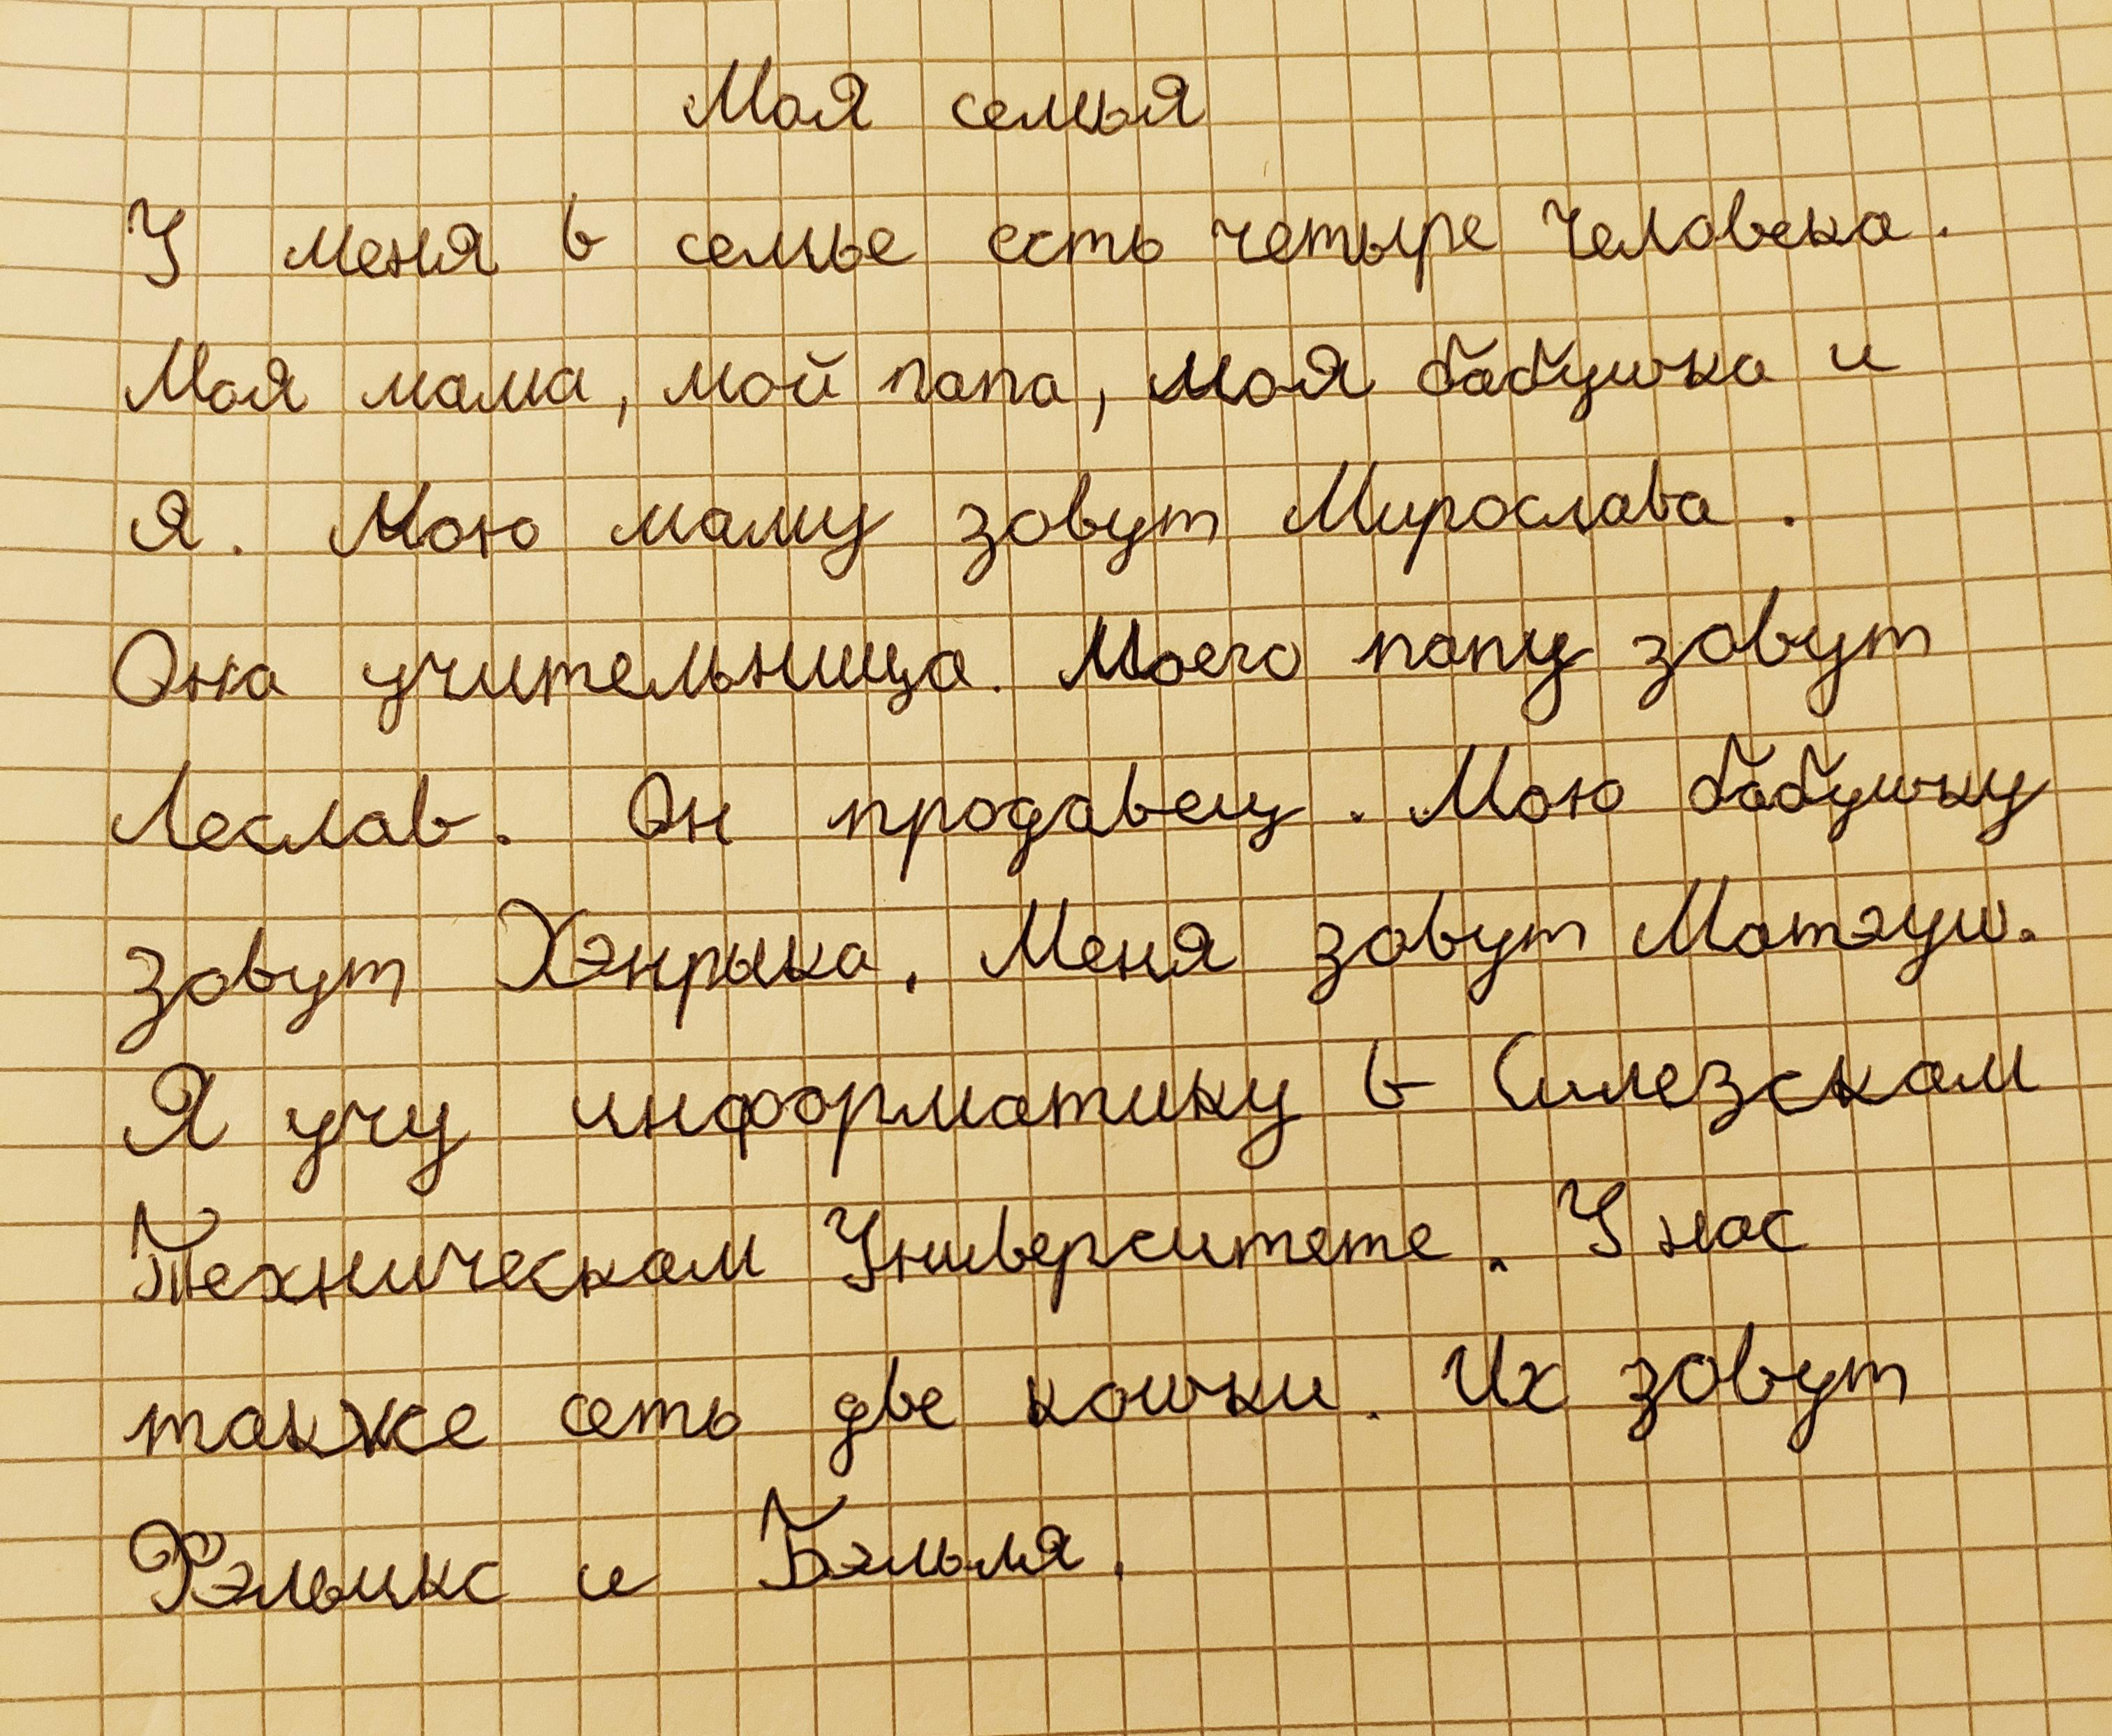 Моя семья
У меня в семье есть четыре человека.
Моя мама, мой папа, моя бабушка и
я. Мою маму зовут Мирослава.
Она учительница. Моего папу зовут
Леслав. Он продавец. Мою бабушку
зовут Хэнрыка. Меня зовут Матэуш.
Я учу информатику в Силезском
Техническом Университете. У нас
также есть две кошки. Их зовут
Фэльикс и Бэльля.